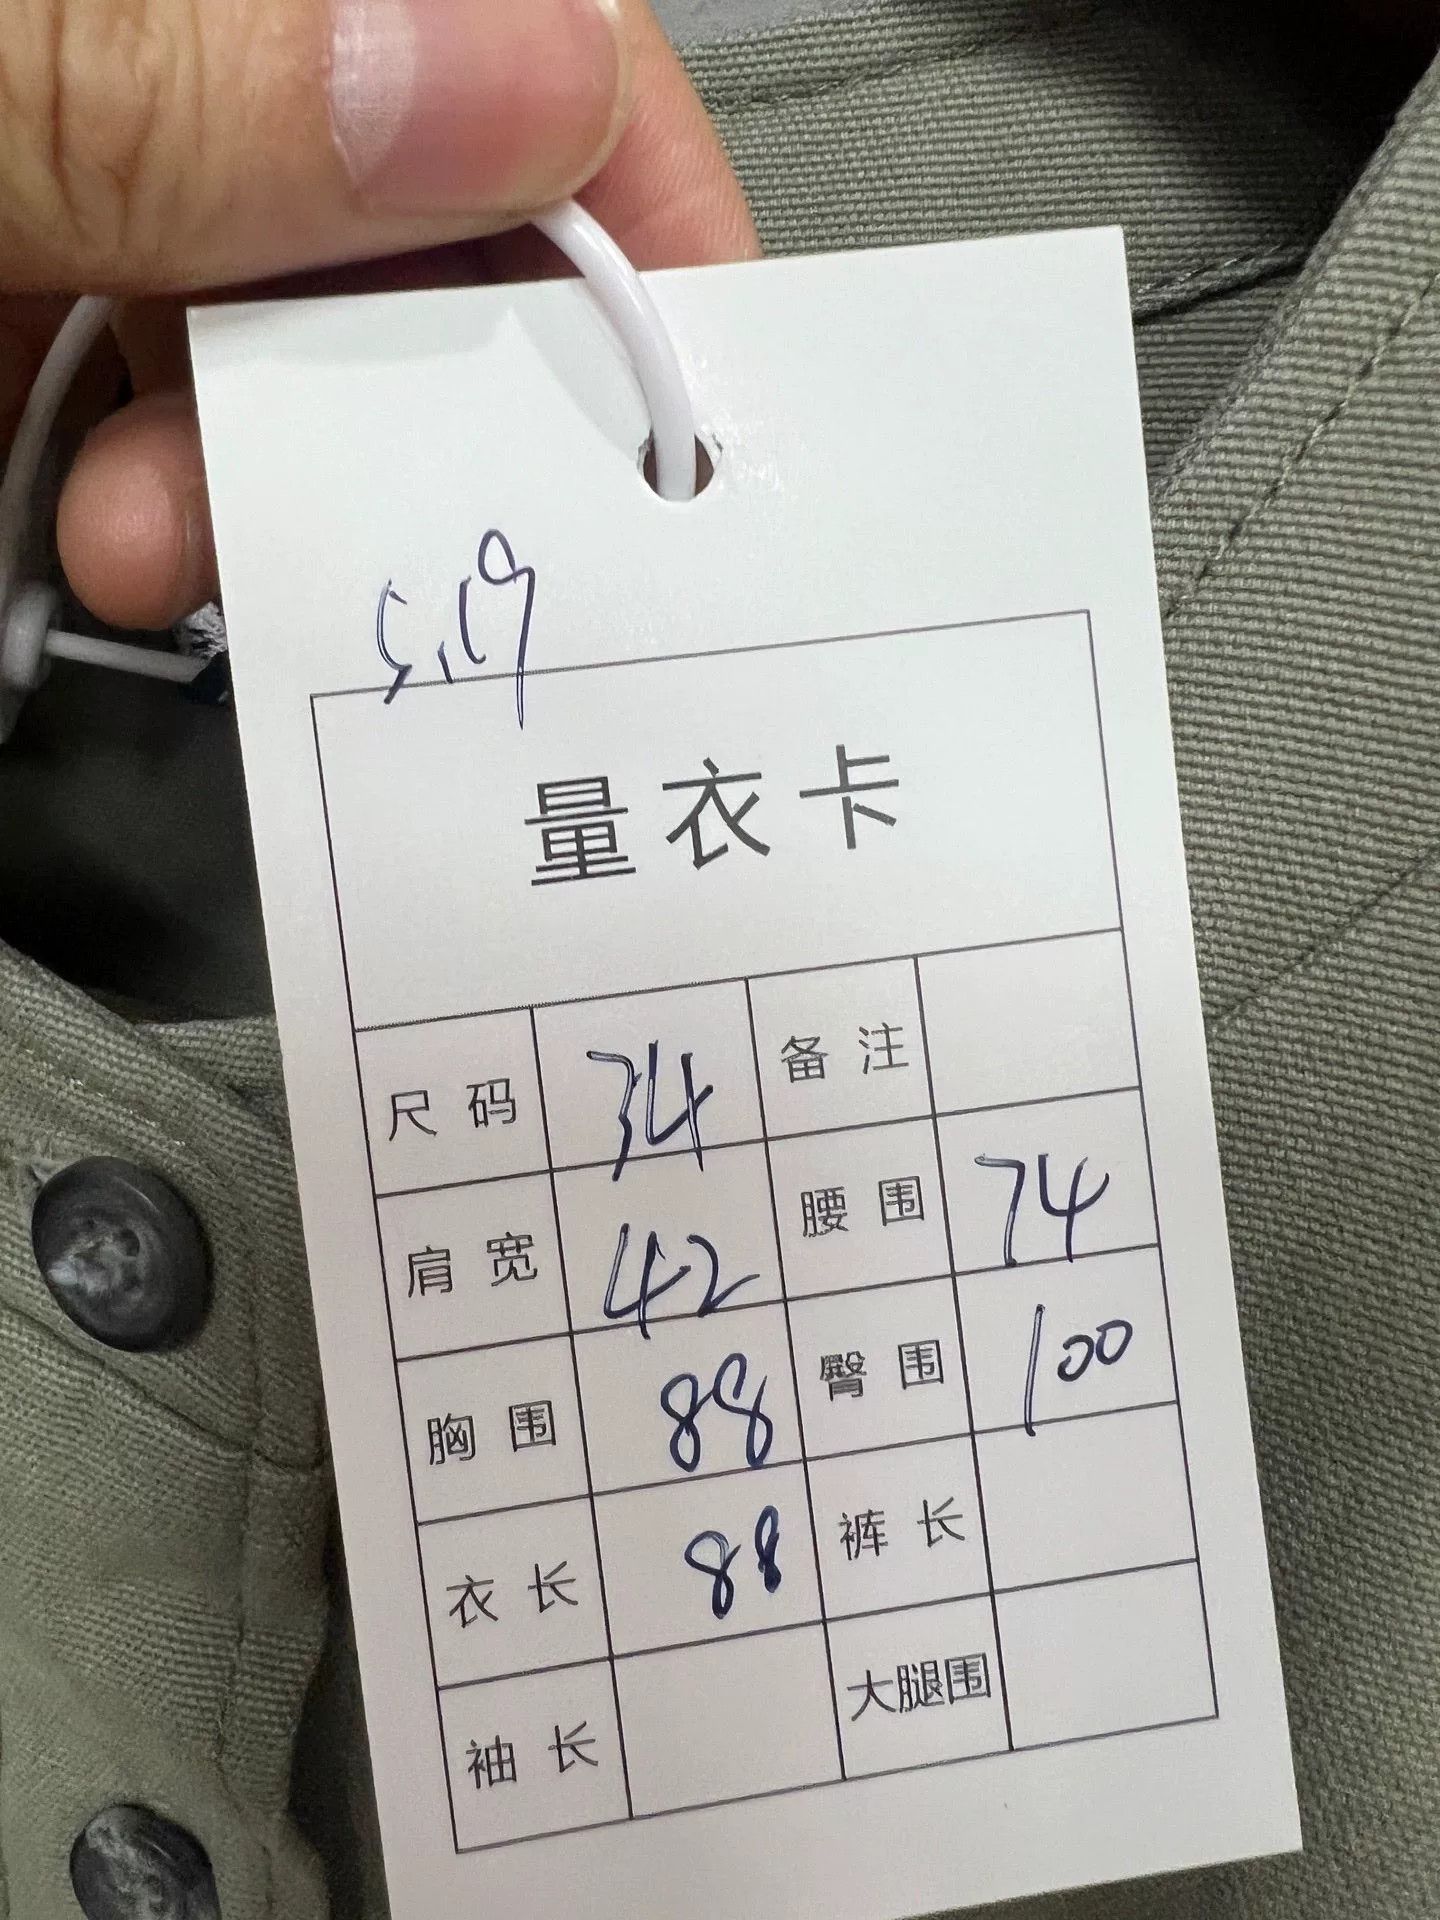 5.19
量衣卡
尺码 34 备注
肩宽 42 腰围 74
胸围 88 臀围 100
衣长 88 裤长
袖长 大腿围